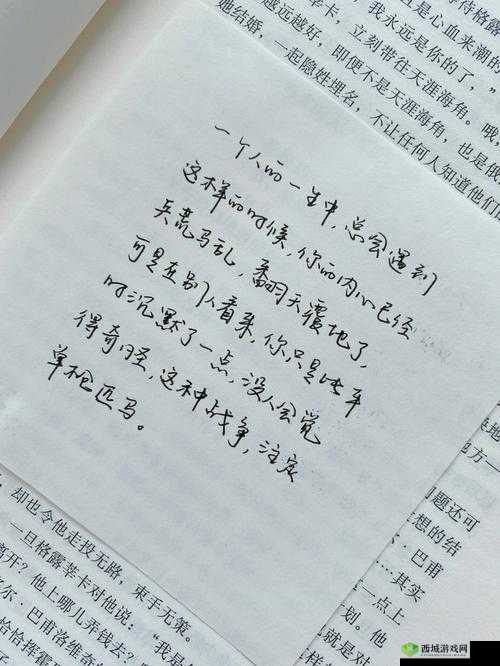 待格露
是心血来潮的
，我永远是你的了，”
莘卡，立刻带往天涯海角。哦，
越远越好，即便不是天涯海角，也是俄
她结婚，一起隐姓埋名，不让任何人知道他们
一个人的一生中，总会遇到
这样的时候，你的内心已经
兵荒马乱，翻天覆地了，
可是在别人看来，你只是比平
时沉默了一点，没人会觉
得奇怪，这种战争，注定
单枪匹马。
地方一
问题还可
想的结
·巴甫
…其实
一点上
划。他
就是对
却也令他走投无路，束手无策。
一旦格露莘卡对他说：“我是
离开？他上哪儿弄钱去？
尔·巴甫洛维奇
恰恰挥霍
西城游戏网